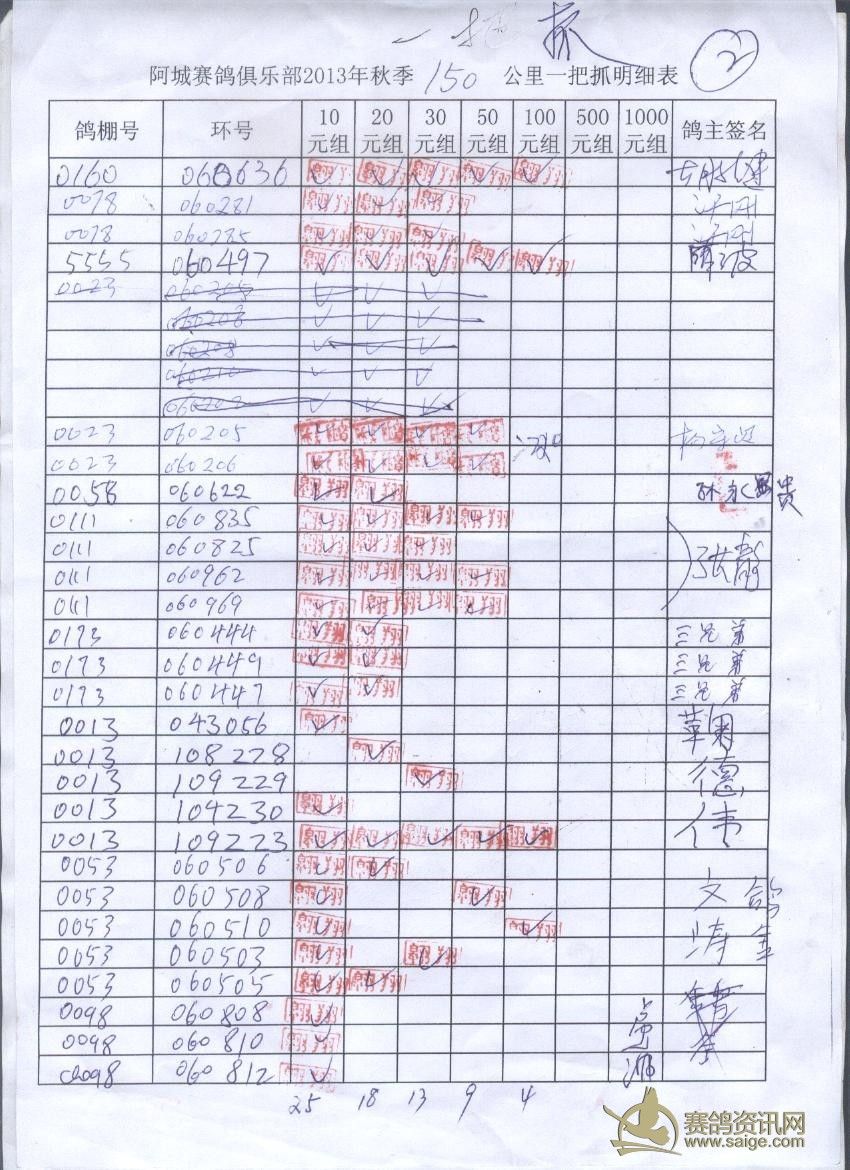 一 抓
阿城赛鸽俱乐部2013年秋季 150 公里一把抓明细表 2
鸽棚号 环号 10元组 20元组 30元组 50元组 100元组 500元组 1000元组 鸽主签名
0160 060636 ✓ ✓ ✓ ✓ ✓
0078 060281 ✓ ✓ ✓
0078 060285 ✓ ✓ ✓
5555 060497 ✓ ✓ ✓ ✓ ✓
0023 060205 ✓ ✓ ✓
060208 ✓ ✓ ✓
060208 ✓ ✓ ✓
060210 ✓ ✓ ✓
060202 ✓ ✓ ✓
0023 060205 ✓ ✓ ✓ ✓
0023 060206 ✓ ✓ ✓ ✓
0058 060622 ✓ ✓ 孙永贵
0111 060835 ✓ ✓ ✓ ✓
0111 060825 ✓ ✓ ✓ 张
0111 060962 ✓ ✓ ✓ ✓
0111 060969 ✓ ✓ ✓ ✓
0173 060444 ✓ ✓ 三兄弟
0173 060449 ✓ ✓ 三兄弟
0173 060447 ✓ ✓ 三兄弟
0013 043056 ✓
0013 108228 ✓
0013 109229 ✓ 德
0013 109230 ✓
0013 109223 ✓ ✓ ✓ ✓ ✓ 伟
0053 060506 ✓ ✓
0053 060508 ✓ ✓ 文鸽
0053 060510 ✓ ✓ 涛
0053 060503 ✓ ✓
0053 060505 ✓ ✓
0098 060808 ✓
0098 060810 ✓
0098 060812 ✓
25 18 13 9 4
赛鸽资讯网
www.saige.com